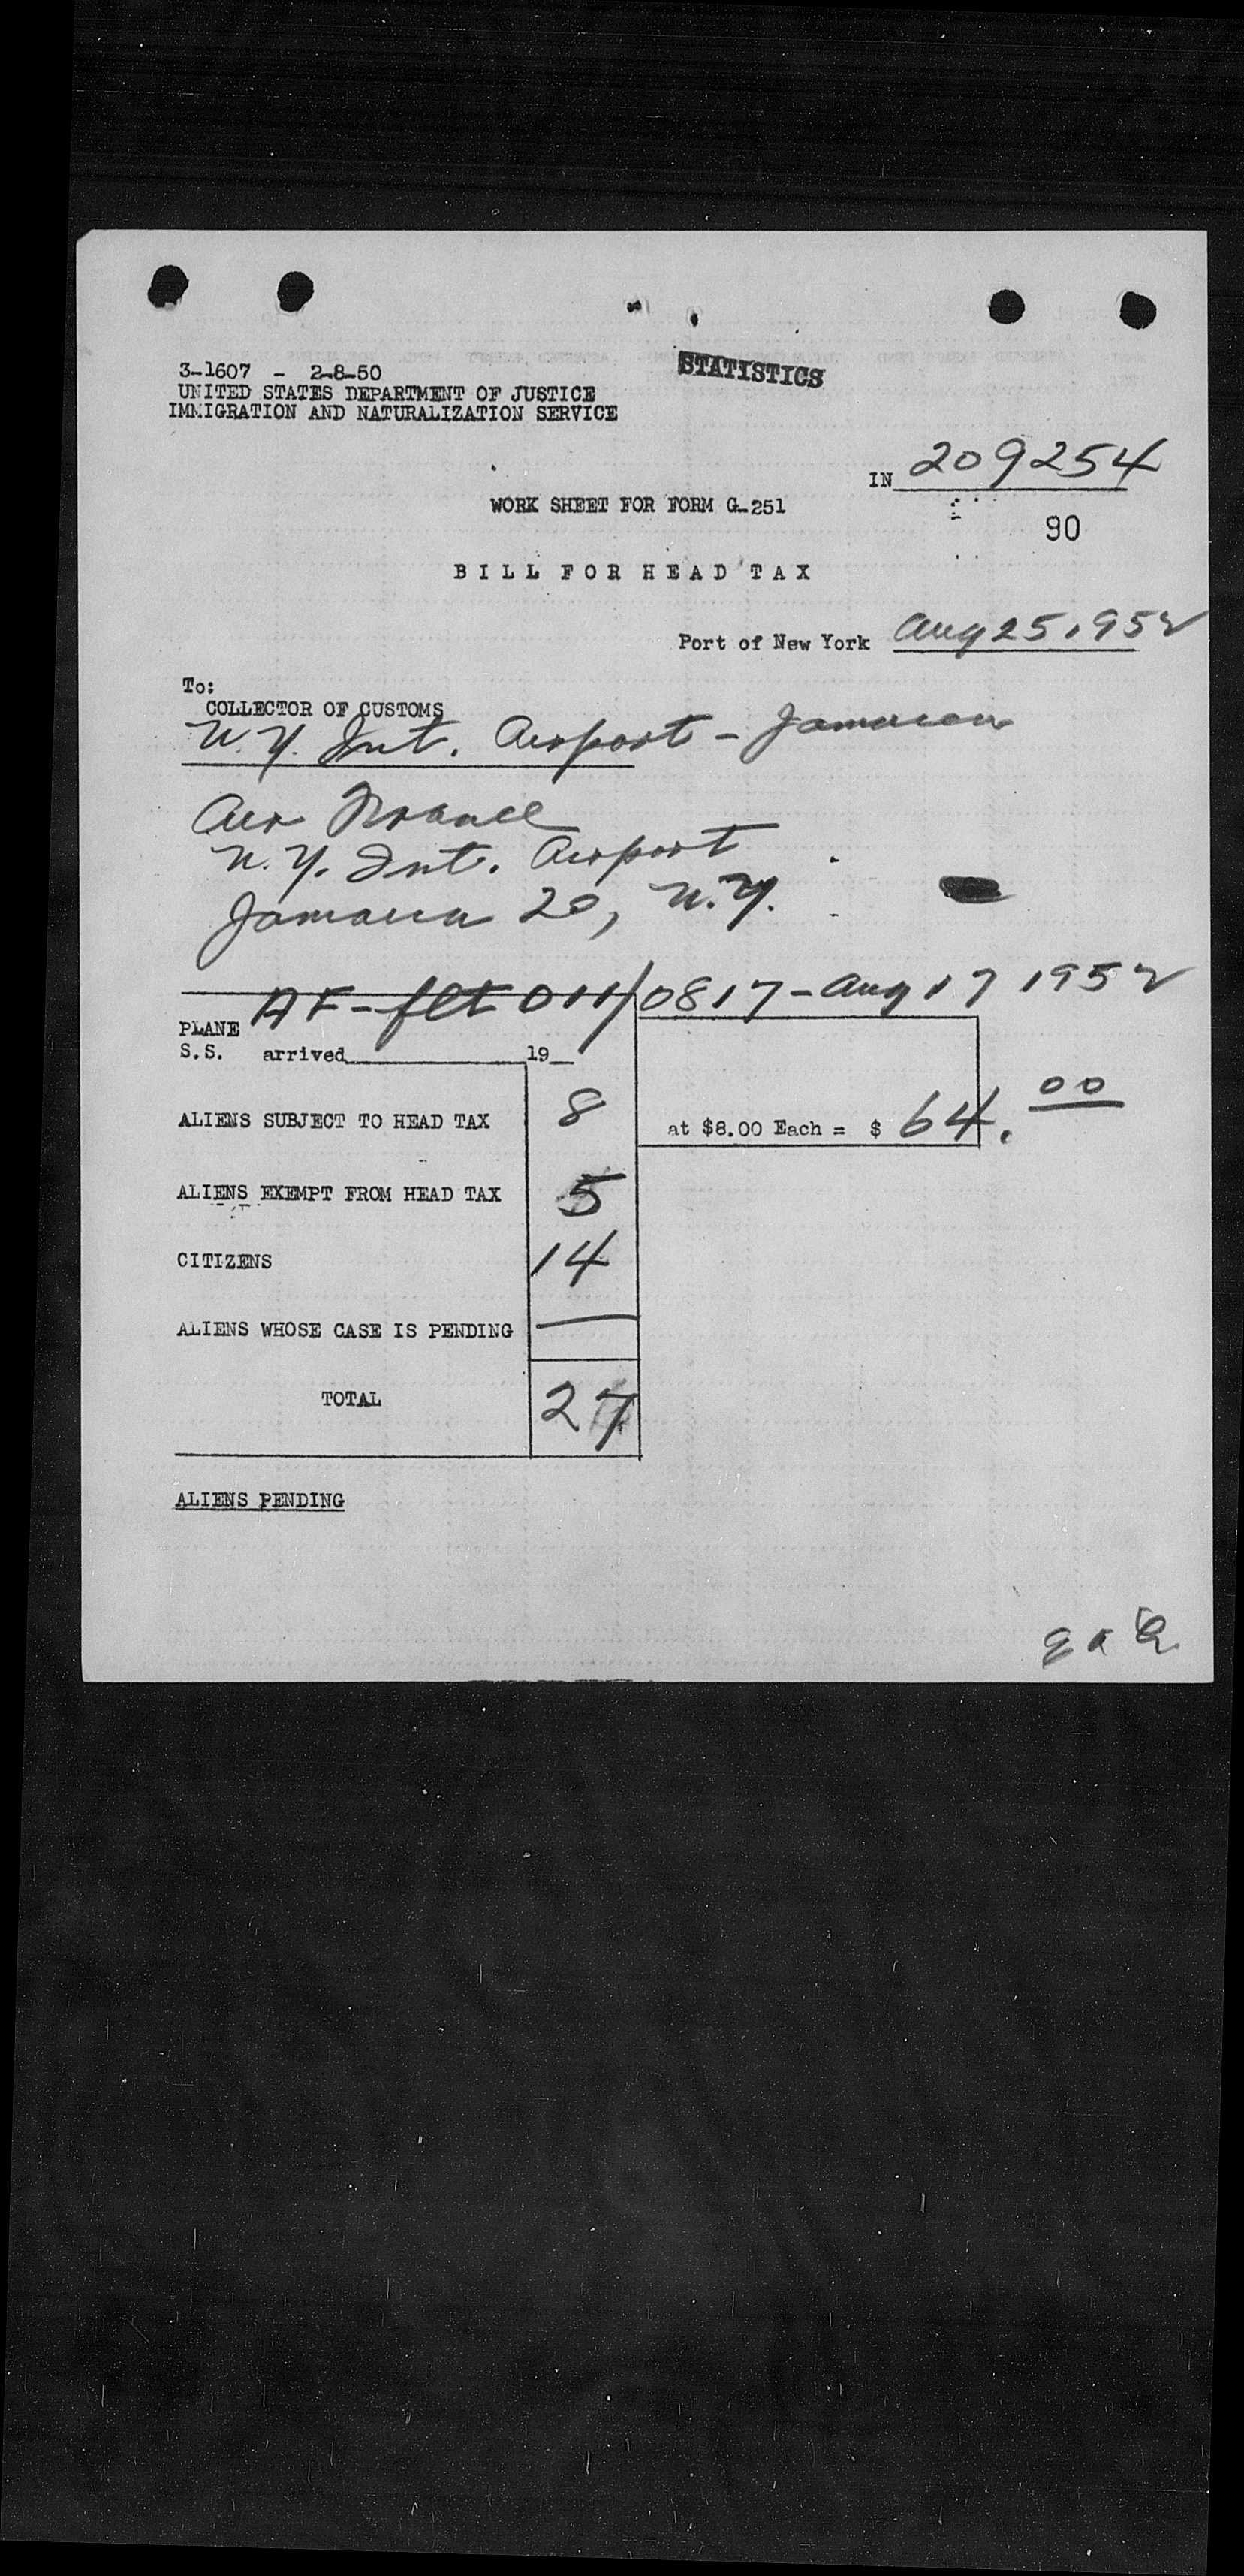 STATISTICS
3-1607 - 2-8-50
UNITED STATES DEPARTMENT OF JUSTICE
IMMIGRATION AND NATURALIZATION SERVICE
IN 209254
WORK SHEET FOR FORM G-251
90
BILL FOR HEAD TAX
Port of New York Aug 25, 1952
To:
COLLECTOR OF CUSTOMS
N.Y. Int. Airport - Jamaica
Air France
N.Y. Int. Airport
Jamaica 20, N.Y.
PLANE AF-flt 011/0817-Aug 17 1952
S.S. arrived 19
ALIENS SUBJECT TO HEAD TAX 8 at $8.00 Each = $ 64.00
ALIENS EXEMPT FROM HEAD TAX 5
CITIZENS 14
ALIENS WHOSE CASE IS PENDING —
TOTAL 27
ALIENS PENDING